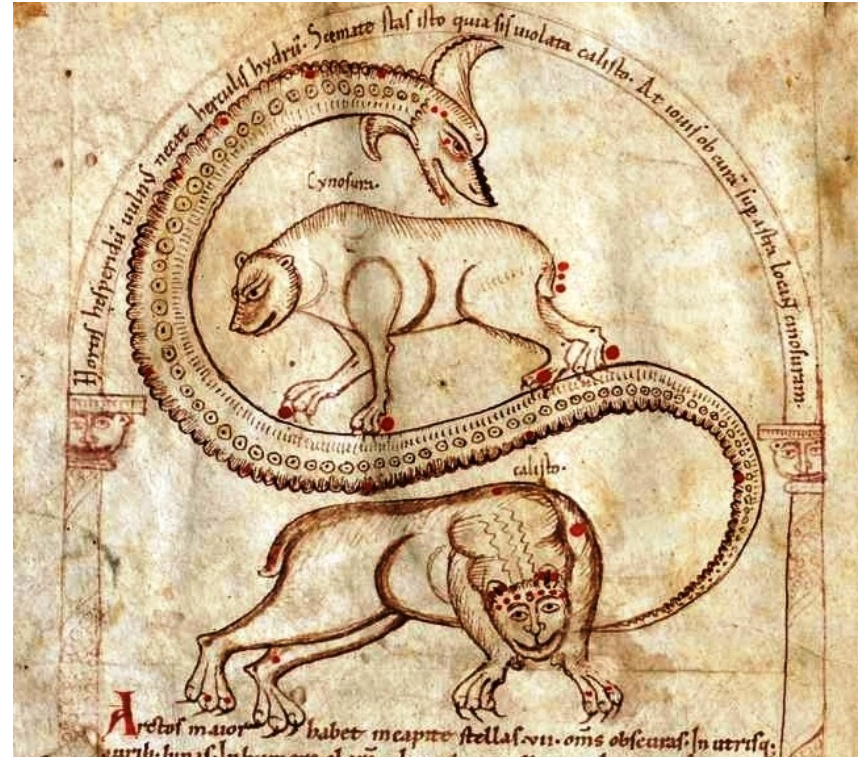 Hortus hesperidū uulnꝰ necat herculis hydrū. Scemate stas isto quia sis uiolata calisto. At iouis ob curā sup astra locaꝰ cinosuram.
Cynosura.
calisto.
Arctos maior habet in capite stellas .vii. om̄s obscuras. In utrisq;
aurib; binas. In humero